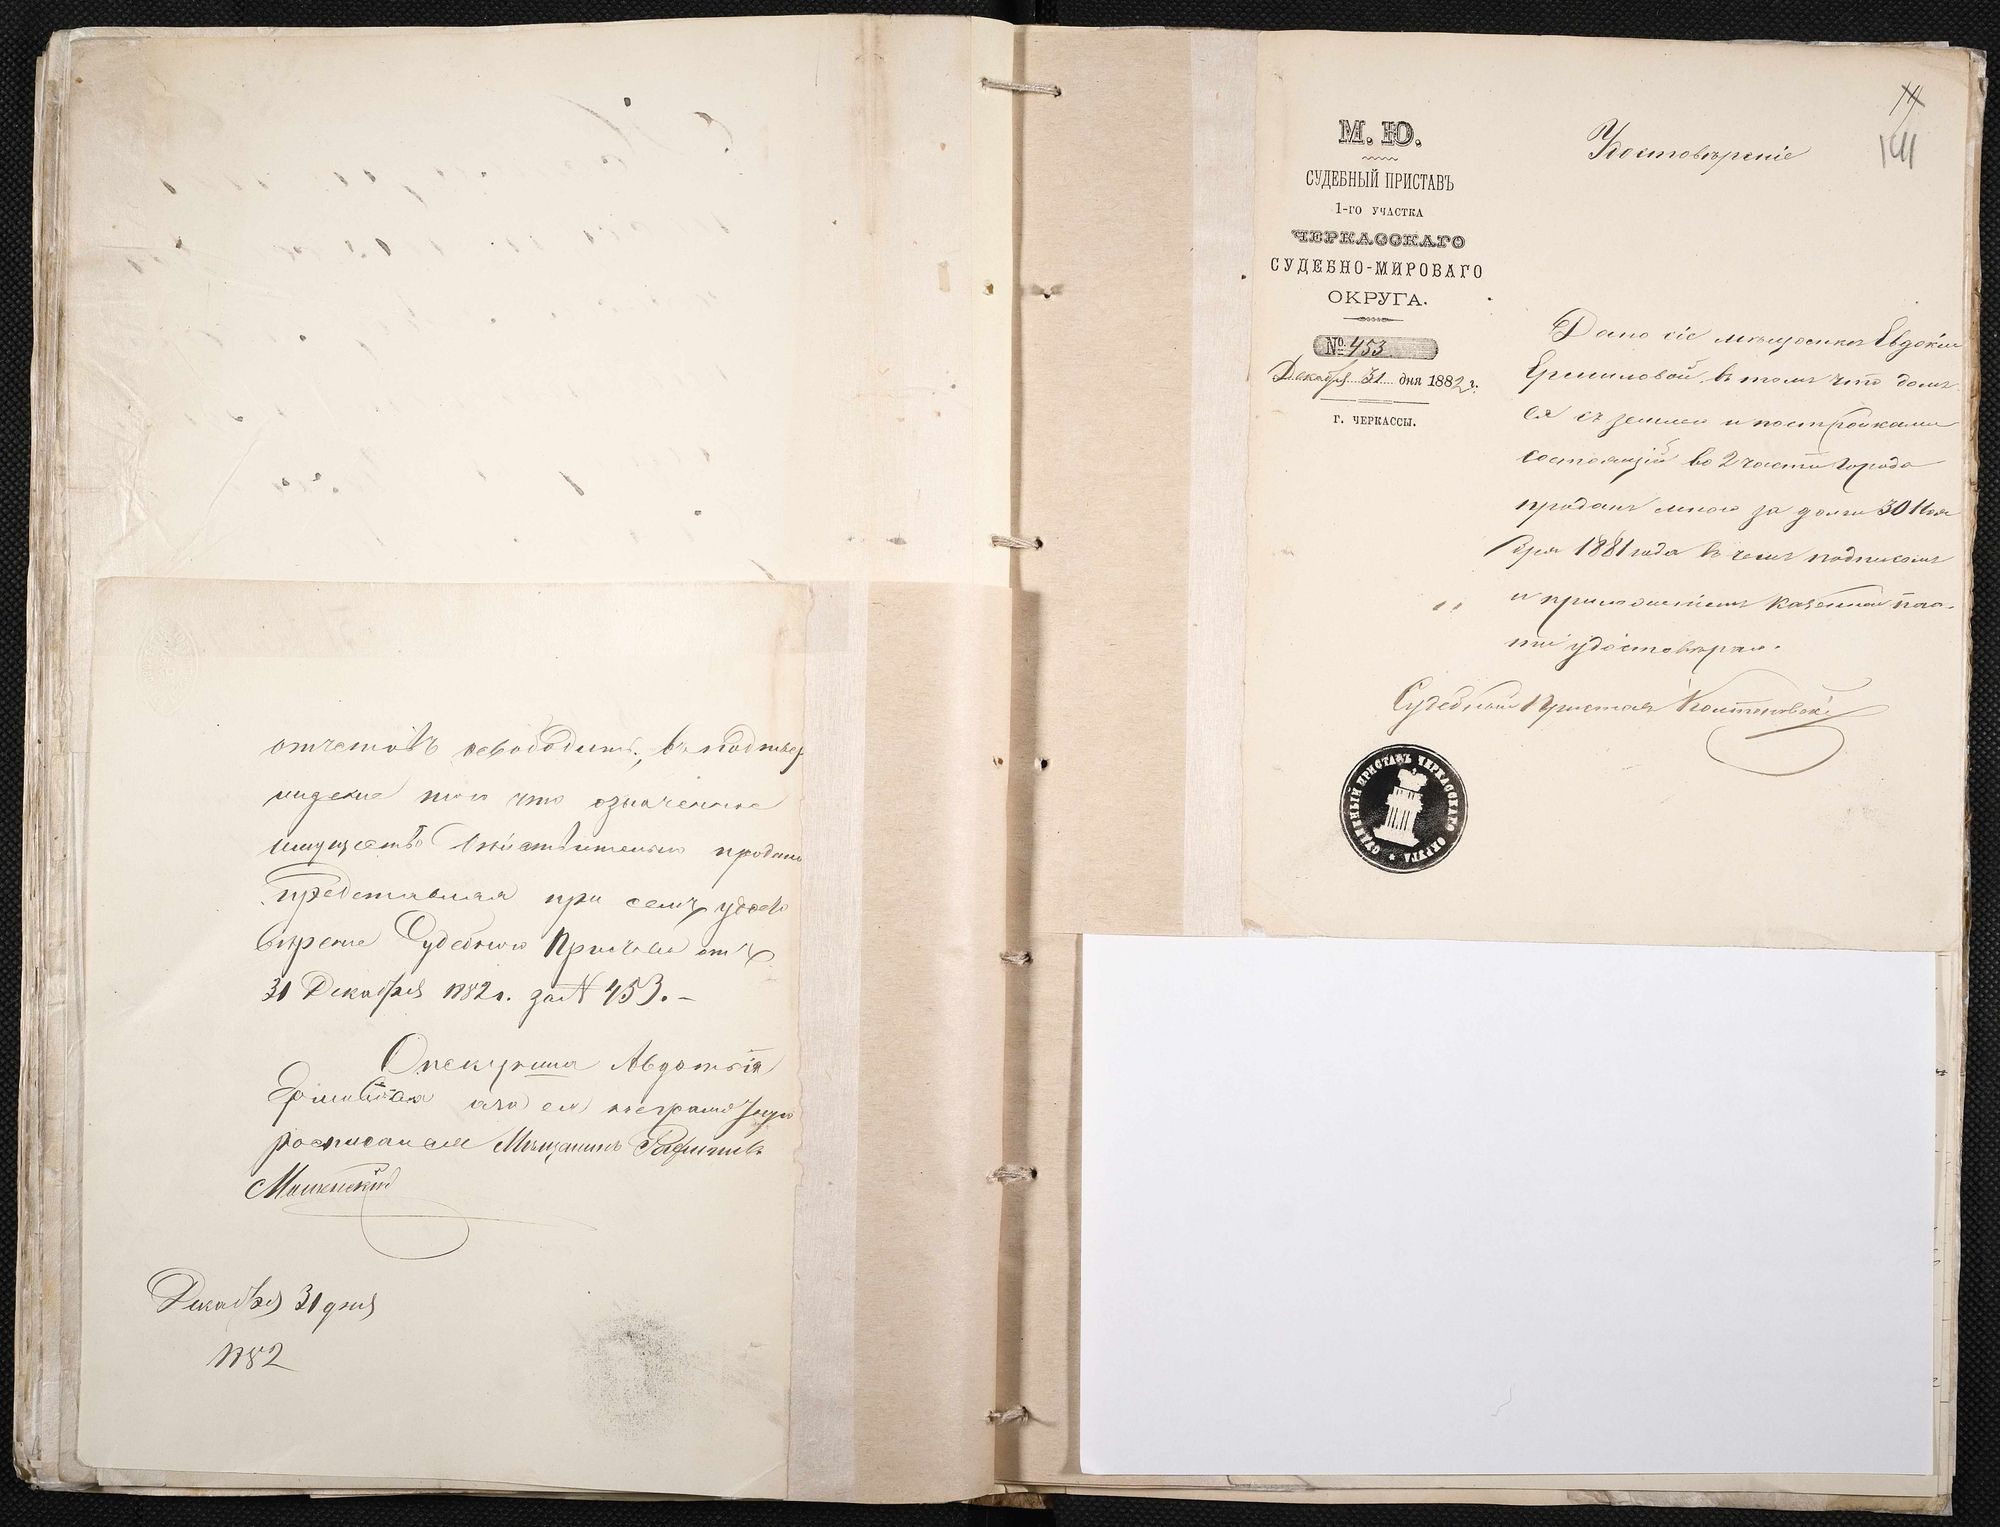 отчетовъ освободить, въ подтвер
ждение того что означенное
имущество действительно продано
представляя при семъ удосто
верение Судебного Пристава отъ
31 Декабря 1882 г. за N 453. –
Опекунша Авдотья
Ермилова а за ея неграмотную
росписался Мѣщанинъ
Декабря 31 дня
1882
М. Ю.
СУДЕБНЫЙ ПРИСТАВЪ
1-го УЧАСТКА
ЧЕРКАССКАГО
СУДЕБНО-МИРОВАГО
ОКРУГА.
№ 453
Декабря 31 дня 1882 г.
г. ЧЕРКАССЫ.
141
Удостовѣреніе
Дано сіе мѣщанкѣ Евдокіи
Ермиловой въ томъ что домъ
ея съ землею и постройками
состоящій во 2 части города
проданъ мною за долги 30 Ноя
бря 1881 года въ чемъ подписомъ
и приложеніемъ казенной печа-
ти удостовѣряю.
Судебный Приставъ
СУДЕБНЫЙ ПРИСТАВЪ ЧЕРКАССКАГО ОКРУГА